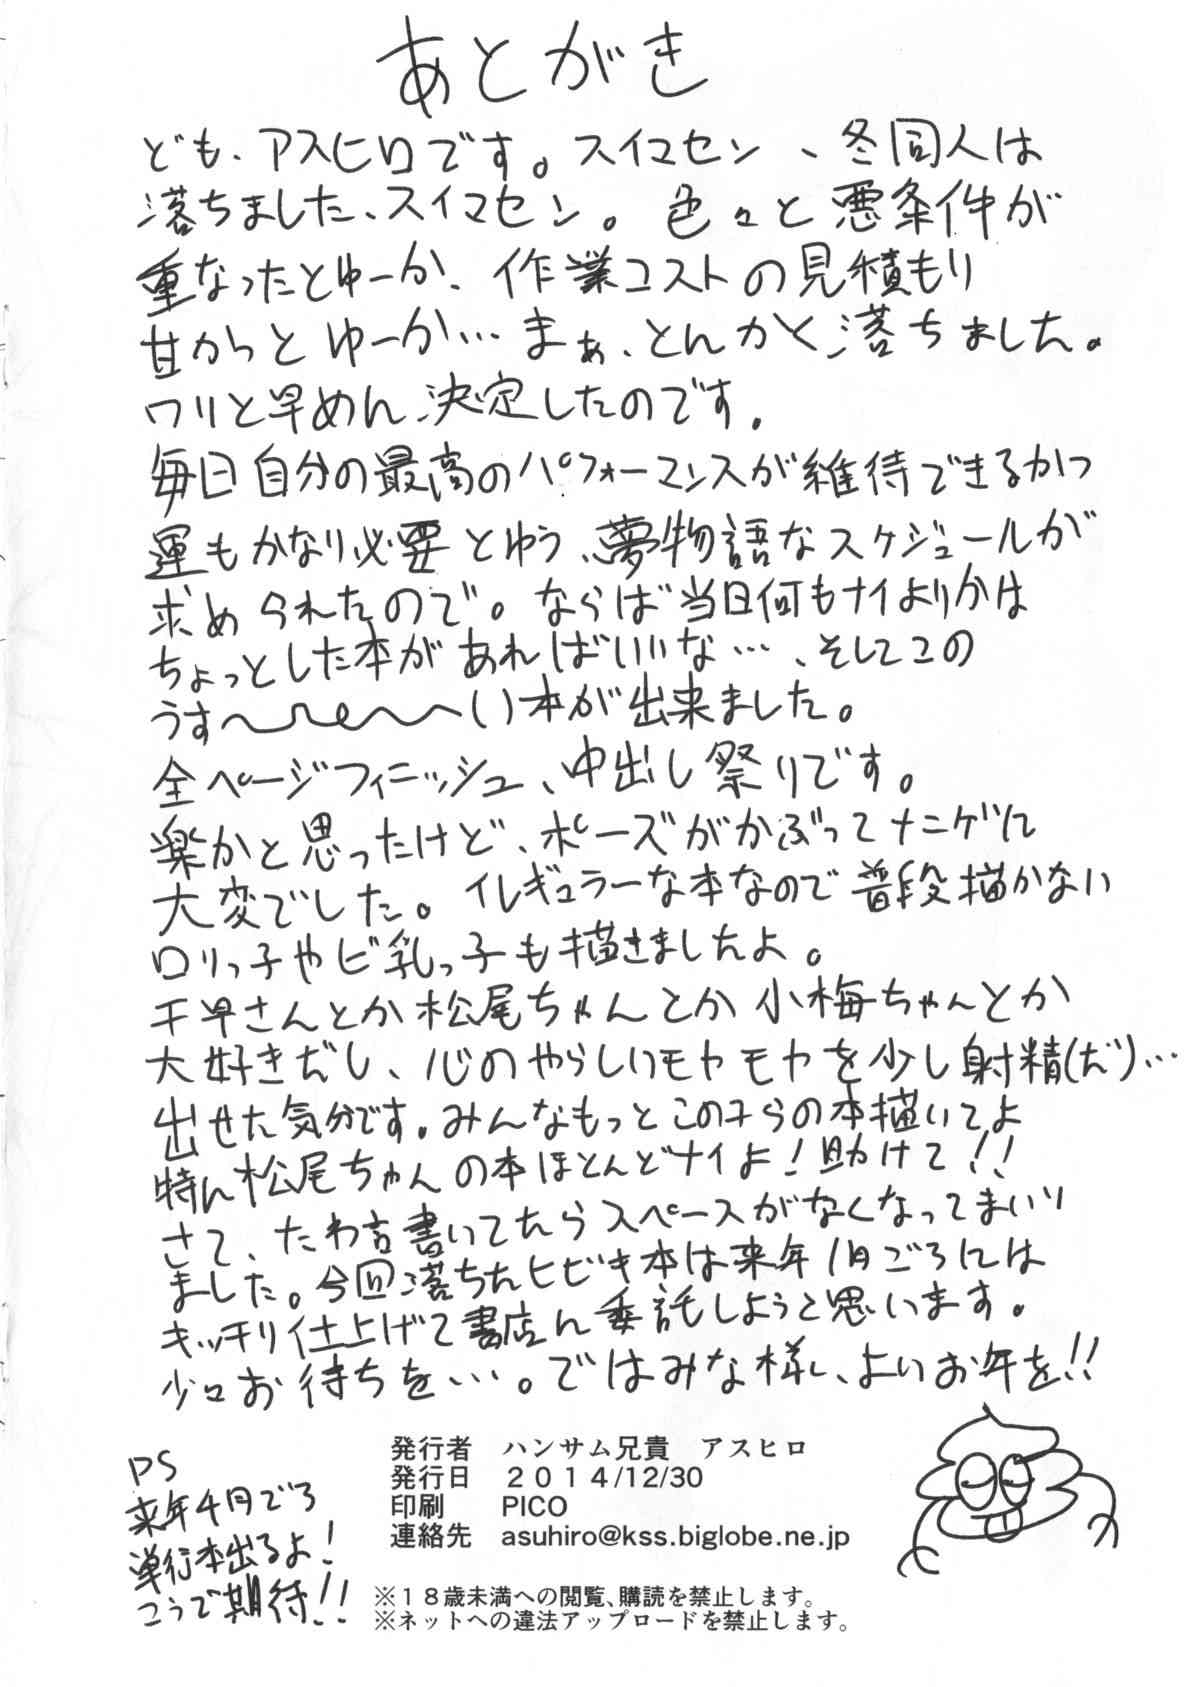 あとがき
ども、アスヒロです。スイマセン、冬同人は
落ちました、スイマセン。色々と悪条件が
重なったとゆーか、作業コストの見積もり
甘かっとゆーか…まぁ、とんかく落ちました。
ワリと早めん決定したのです。
毎日自分の最高のパフォーマンスが維待できるかつ
運もかなり必要とゆう、夢物語なスケジュールが
求められたので。ならば当日何もナイよりかは
ちょっとした本があればいいな…、そしてこの
うす〜〜〜い本が出来ました。
全ページフィニッシュ、中出し祭りです。
楽かと思ったけど、ポーズがかぶってナニゲに
大変でした。イレギュラーな本なので普段描かない
ロリっ子やビ乳っ子も描きましたよ。
千早さんとか松尾ちゃんとか小梅ちゃんとか
大好きだし、心のやらしいモヤモヤを少し射精(だ)…
出せた気分です。みんなもっとこの子らの本描いてよ
特ん松尾ちゃんの本ほとんどナイよ!助けて!!
さて、たわ言書いてたらスペースがなくなってまいり
ました。今回落ちたヒビキ本は来年1月ごろには
キッチリ仕上げて書店ん委託しようと思います。
少々お待ちを…。ではみな様、よいお年を!!
発行者 ハンサム兄貴 アスヒロ
発行日 2014/12/30
印刷 PICO
連絡先 asuhiro@kss.biglobe.ne.jp
※18歳未満への閲覧、購読を禁止します。
※ネットへの違法アップロードを禁止します。
PS
来年4月ごろ
単行本出るよ!
こうご期待!!